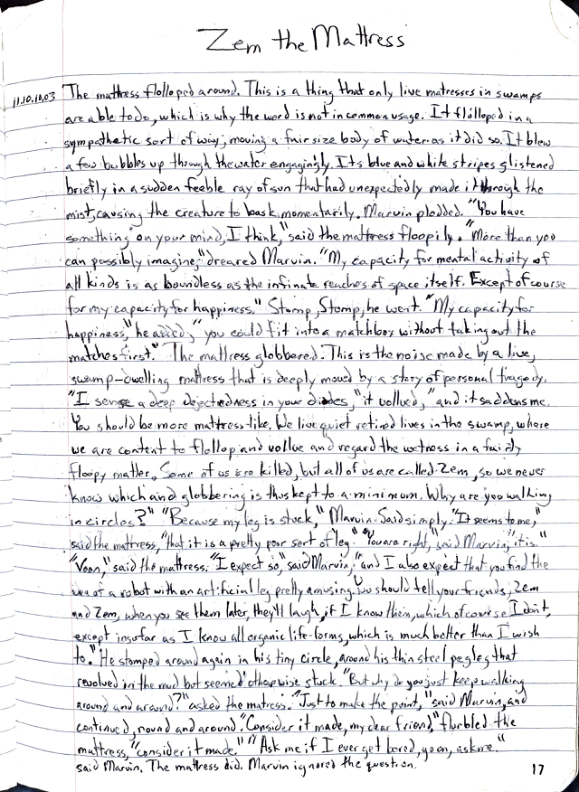 Zem the Mattress
11.10.10.03 The mattress flolloped around. This is a thing that only live matresses in swamps
are able to do, which is why the word is not in common usage. It flolloped in a
sympathetic sort of way, moving a fair size body of water as it did so. It blew
a few bubbles up through the water engagingly. Its blue and white stripes glistened
briefly in a sudden feeble ray of sun that had unexpectedly made it through the
mist, causing the creature to bask momentarily. Marvin plodded. "You have
something on your mind, I think," said the mattress floopily. "More than you
can possibly imagine," dreared Marvin. "My capacity for mental activity of
all kinds is as boundless as the infinate reaches of space itself. Except of course
for my capacity for happiness." Stomp, Stomp, he went. "My capacity for
happiness," he added, "you could fit into a matchbox without taking out the
matches first." The mattress globbered. This is the noise made by a live,
swamp-dwelling mattress that is deeply moved by a story of personal tragedy.
"I sense a deep dejectedness in your diodes," it vollued, "and it saddens me.
You should be more mattress like. We live quiet retired lives in the swamp, where
we are content to flollop and vollue and regard the wetness in a fairly
floopy matter. Some of us are killed, but all of us are called Zem, so we never
know which and globbering is thus kept to a minimum. Why are you walking
in circles?" "Because my leg is stuck," Marvin said simply. "It seems to me,"
said the mattress, "that it is a pretty poor sort of leg." "You are right," said Marvin, "it is."
"Voon," said the mattress. "I expect so," said Marvin, "and I also expect that you find the
idea of a robot with an artificial leg pretty amusing. You should tell your friends, Zem
and Zem, when you see them later, they'll laugh, if I know them, which of course I don't,
except insofar as I know all organic life-forms, which is much better than I wish
to." He stomped around again in his tiny circle, around his thin steel peg leg that
revolved in the mud but seemed otherwise stuck. "But why do you just keep walking
around and around?" asked the matress. "Just to make the point," said Marvin, and
continued, round and around. "Consider it made, my dear friend," flurbled the
mattress, "consider it made." "Ask me if I ever get bored, go on, ask me."
said Marvin. The mattress did. Marvin ignored the question.
17